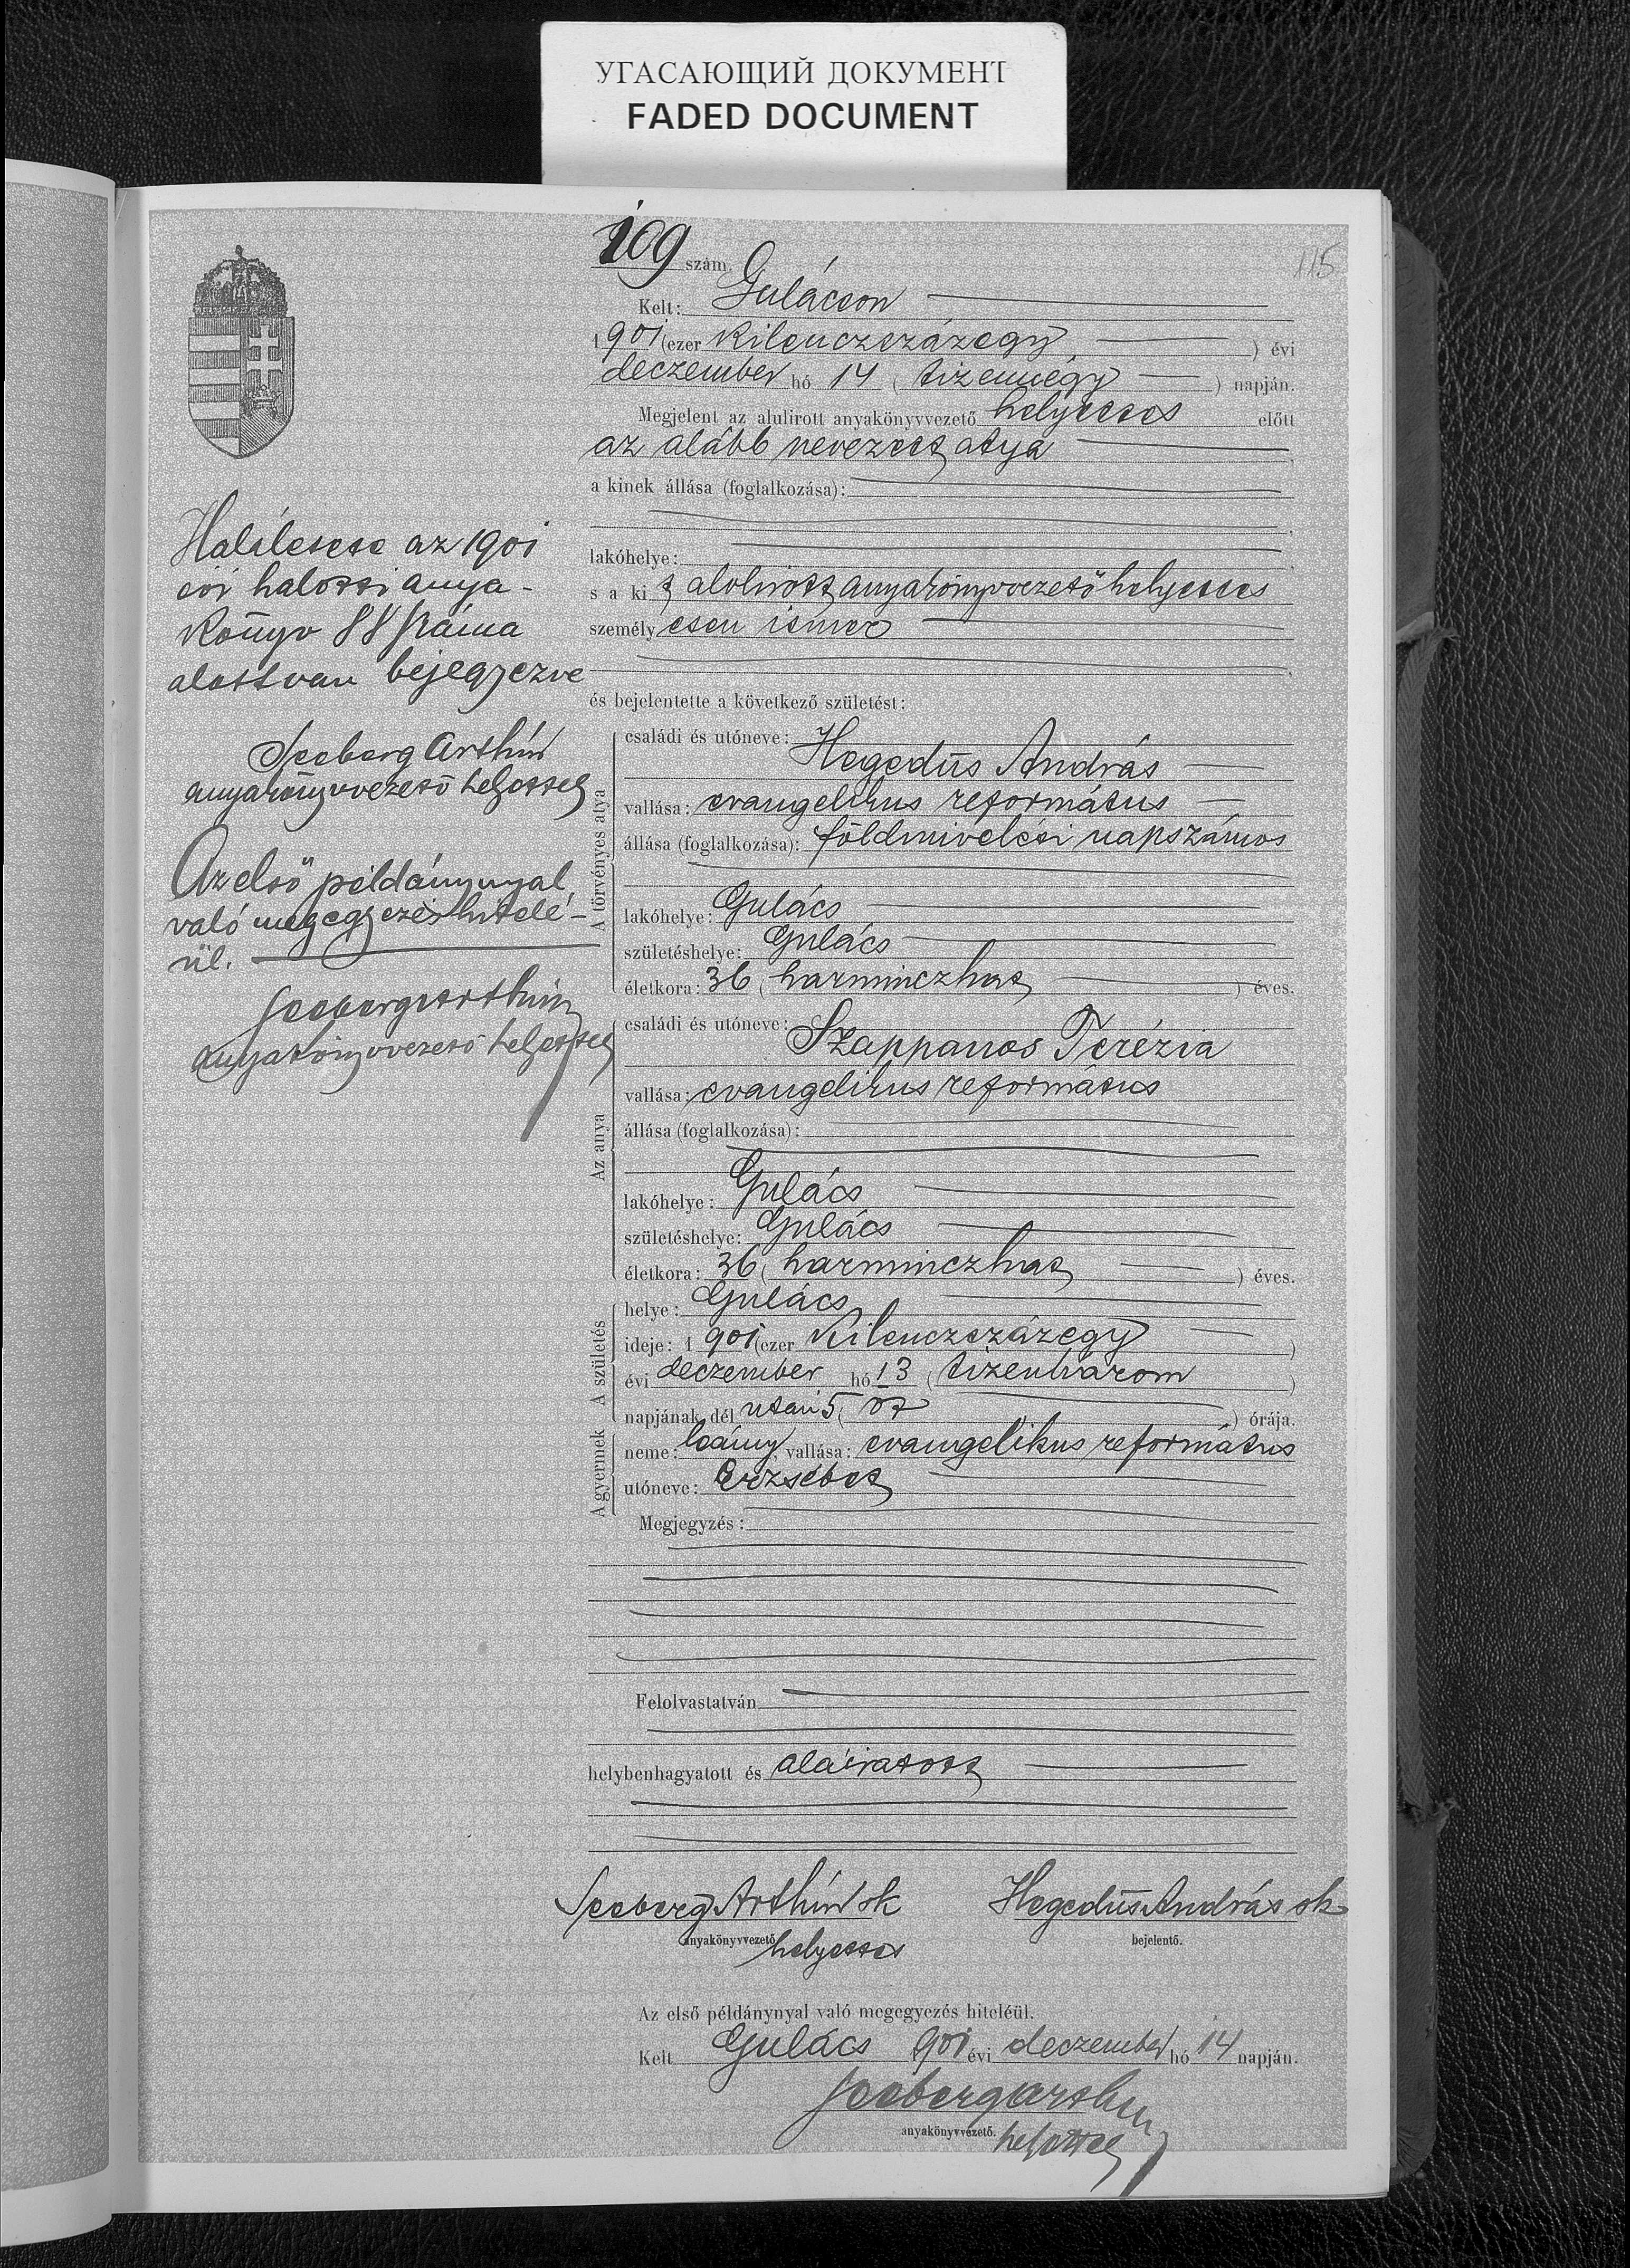 УГАСАЮЩИЙ ДОКУМЕНТ
FADED DOCUMENT
115
109 szám.
Kelt: Gulácson
1901 (ezer kilenczszázegy) évi
deczember hó 14 (tizennégy) napján.
Megjelent az alulirott anyakönyvvezető helyettes előtt
az alább nevezett atya
a kinek állása (foglalkozása):
lakóhelye:
s a ki t alolirott anyakönyvvezető helyettes
személyesen ismer
és bejelentette a következő születést:
A törvényes atya
családi és utóneve:
Hegedüs András
vallása: evangelikus református
állása (foglalkozása): földmivelési napszámos
lakóhelye: Gulács
születéshelye: Gulács
életkora: 36 (harminczhat) éves.
Az anya
családi és utóneve:
Szappanos Terézia
vallása: evangelikus református
állása (foglalkozása):
lakóhelye: Gulács
születéshelye: Gulács
életkora: 36 (harminczhat) éves.
A születés
helye: Gulács
ideje: 1901 (ezer kilenczszázegy)
évi deczember hó 13 (tizenhárom)
napjának dél után 5 (öt) órája.
A gyermek
neme: leány, vallása: evangelikus református
utóneve: Erzsébet
Megjegyzés:
Felolvastatván
helybenhagyatott és aláiratott
Seeberg Arthúr sk Hegedüs András sk
anyakönyvvezető helyettes bejelentő.
Az első példánynyal való megegyezés hiteléül.
Kelt Gulács 901 évi deczember hó 14 napján.
Seeberg Arthur
anyakönyvvezető. helyettes
Halálesete az 1901
évi halotti anya-
könyv 88 száma
alatt van bejegyezve
Seeberg Arthúr
anyakönyvvezető helyettes
Az első példánynyal
való megegyezés hitelé-
ül.
Seeberg Arthúr
anyakönyvvezető helyettes